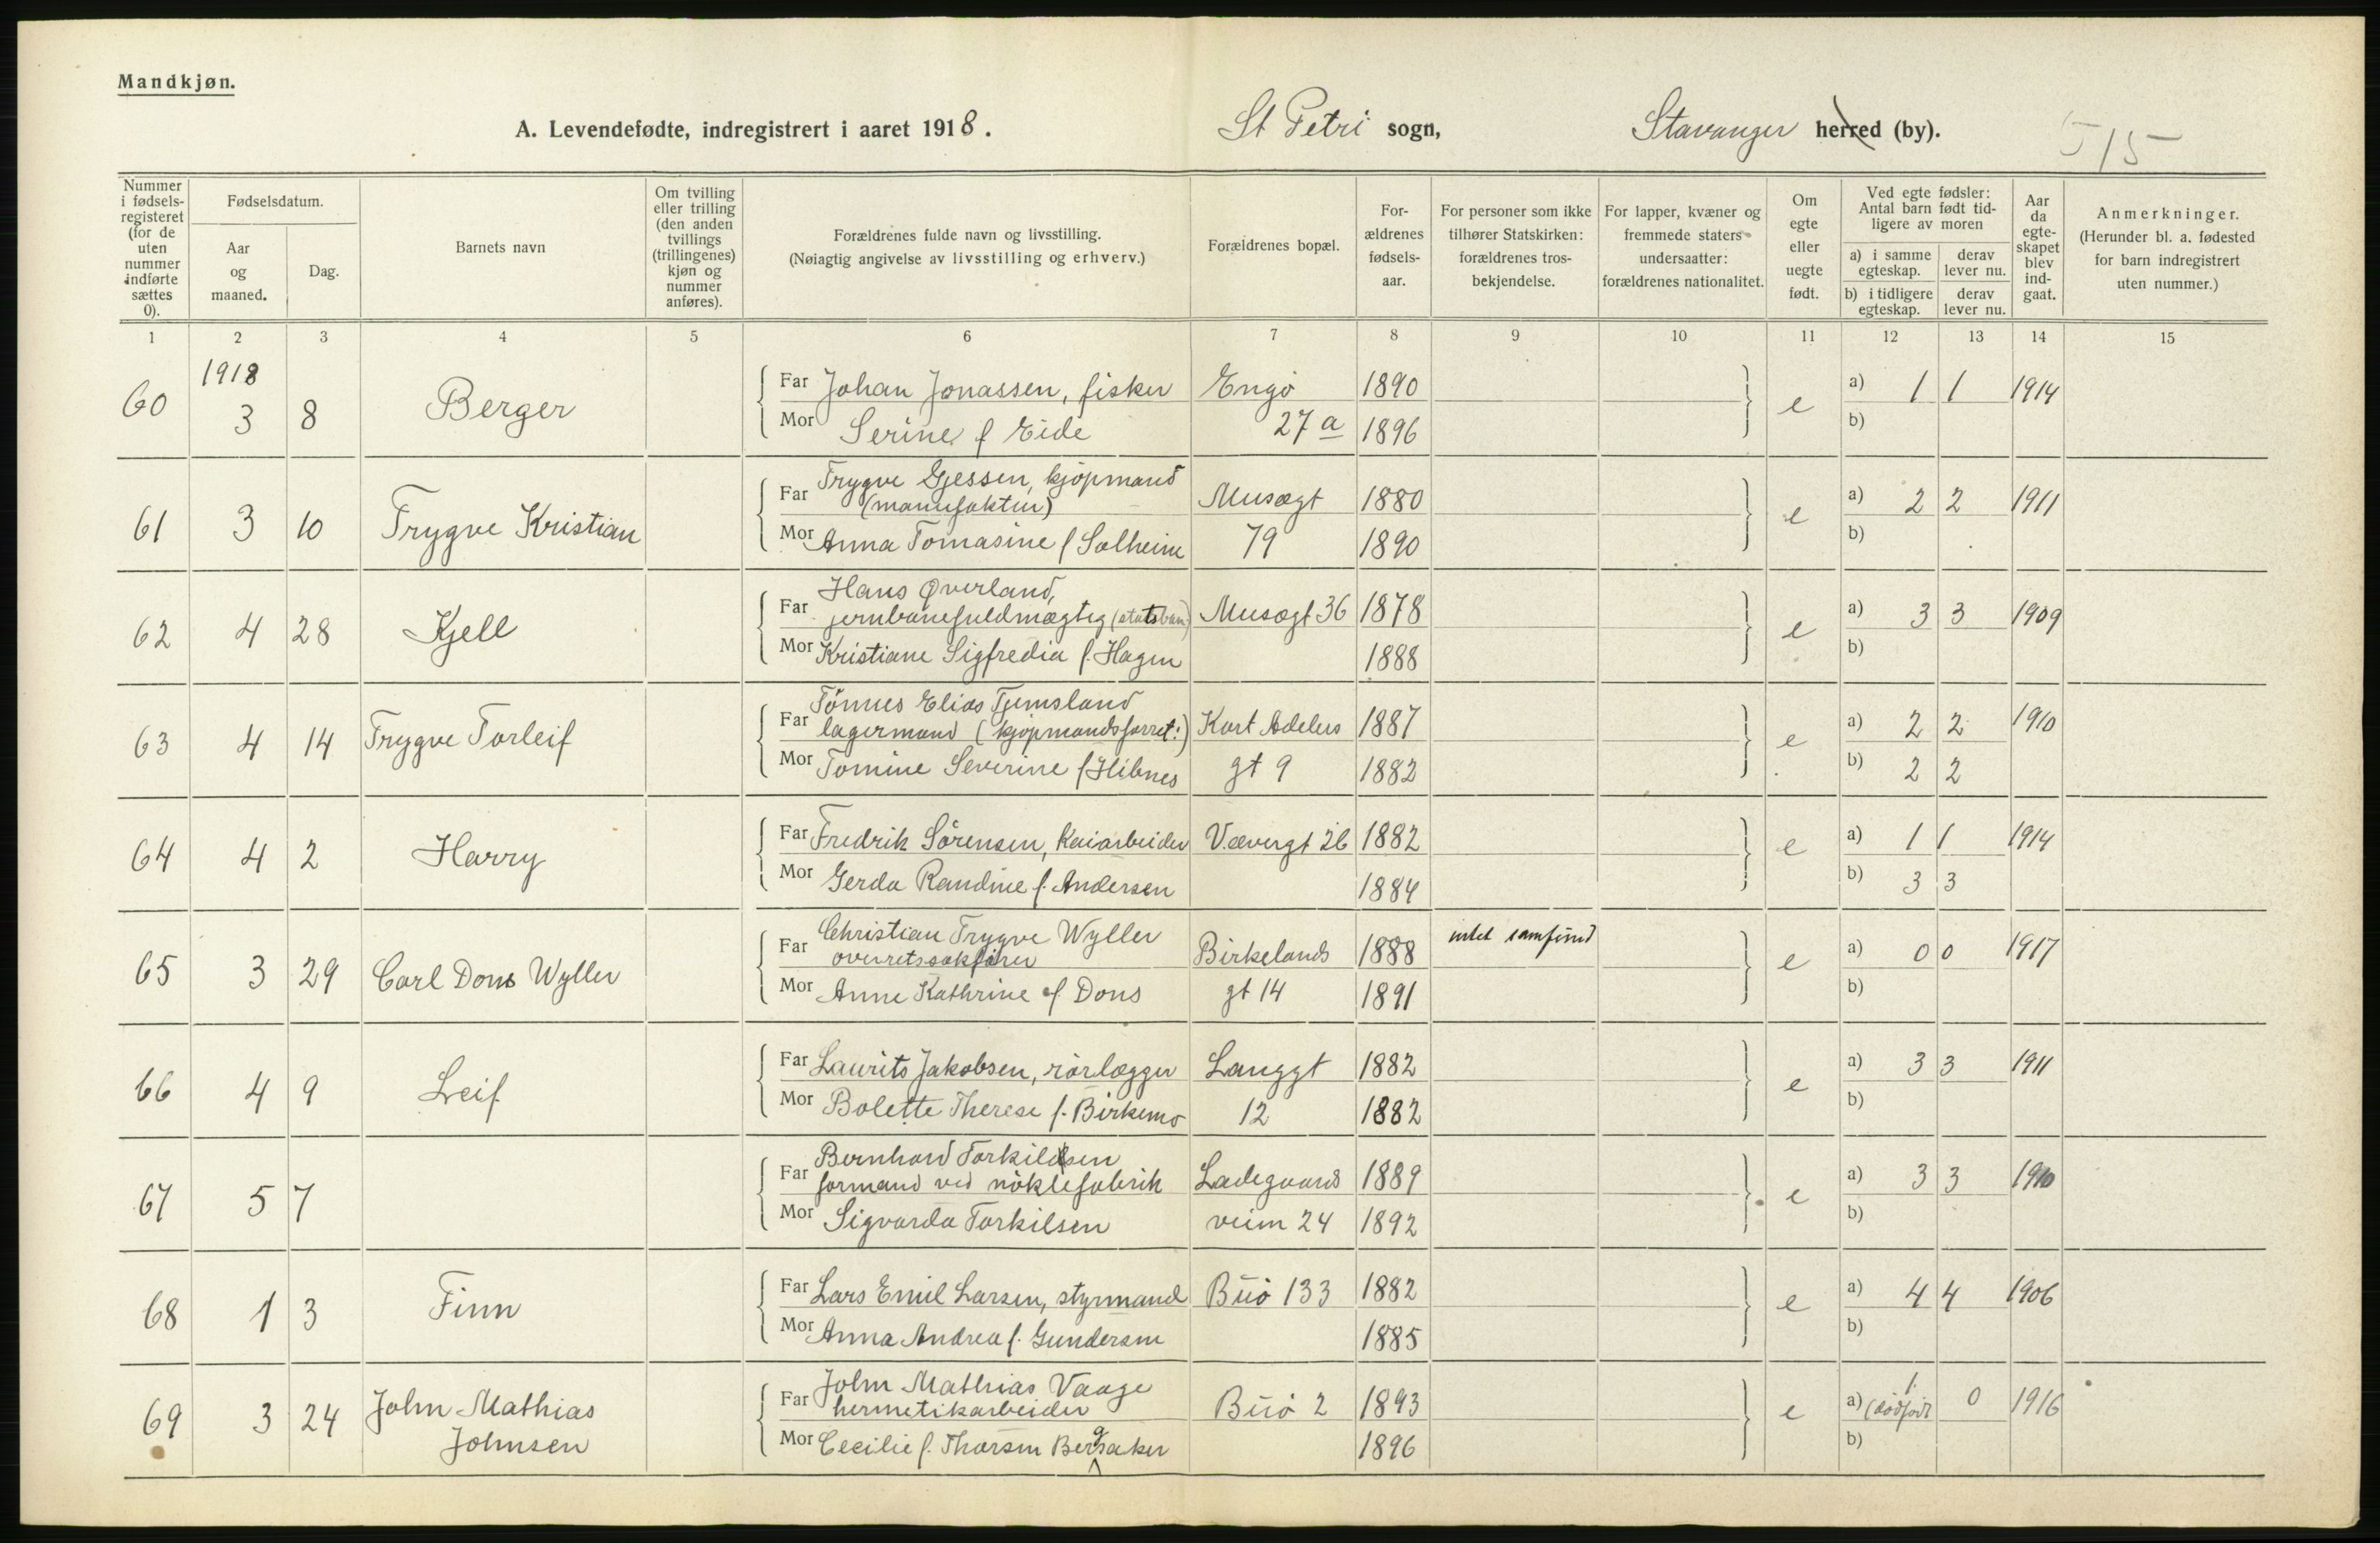 Mandkjøn.
A. Levendefødte, indregistrert i aaret 1918. St Petri sogn, Stavanger herred (by).
515
Nummer i fødsels-registeret (for de uten nummer indførte sættes 0).
Fødselsdatum.
Aar og maaned.
Dag.
Barnets navn
Om tvilling eller trilling (den anden tvillings (trillingenes) kjøn og nummer anføres).
Forældrenes fulde navn og livsstilling.
(Nøiagtig angivelse av livsstilling og erhverv.)
Forældrenes bopæl.
For-ældrenes fødsels-aar.
For personer som ikke tilhører Statskirken: forældrenes tros-bekjendelse.
For lapper, kvæner og fremmede staters undersaatter: forældrenes nationalitet.
Om egte eller uegte født.
Ved egte fødsler: Antal barn født tid-ligere av moren
a) i samme egteskap. derav lever nu.
b) i tidligere egteskap. derav lever nu.
Aar da egte-skapet blev ind-gaat.
Anmerkninger.
(Herunder bl. a. fødested for barn indregistrert uten nummer.)
1 2 3 4 5 6 7 8 9 10 11 12 13 14 15
1918
60 3 8 Berger Far Johan Jonassen, fisker Engø 1890 e a) 1 1 1914
Mor Serine f Eide 27 a 1896 b)
Trygve Gjessen, kjøpmand
61 3 10 Trygve Kristian Far (manufaktur) Musægt 1880 e a) 2 2 1911
Mor Anna Tomasine f Solheim 79 1890 b)
Hans Øverland,
62 4 28 Kjell Far jernbanefuldmægtig (statsban) Musægt 36 1878 e a) 3 3 1909
Mor Kristiane Sigfredia f. Hagen 1888 b)
Tönnes Elias Tjemsland
63 4 14 Trygve Torleif Far lagermand (kjøpmandsforret.) Kort Adelers 1887 e a) 2 2 1910
Mor Tomine Severine f Hibnes gt 9 1882 b) 2 2
64 4 2 Harry Far Fredrik Sörensen, Kaiarbeider Vævergt 26 1882 e a) 1 1 1914
Mor Gerda Randine f. Andersen 1884 b) 3 3
Christian Trygve Wyller
65 3 29 Carl Dons Wyller Far overretssakfører Birkelands 1888 intet samfund e a) 0 0 1917
Mor Anne Kathrine f. Dons gt 14 1891 b)
66 4 9 Leif Far Laurits Jakobsen, rörlægger Langgt 1882 e a) 3 3 1911
Mor Bolette Therese f. Birkemo 12 1882 b)
Bernhard Torkilsen
67 5 7 Far formand ved nöklefabrik Ladegaards 1889 e a) 3 3 1910
Mor Sigvarda Torkilsen veien 24 1892 b)
68 1 3 Finn Far Lars Emil Larsen, styrmand Buö 133 1882 e a) 4 4 1906
Mor Anna Andrea f. Gundersen 1885 b)
John Mathias Vaage
69 3 24 John Mathias Far hermetikarbeider Buö 2 1893 e a) 1 (dödfödt 0 1916
Johnsen Mor Cecilie f. Thorsen Bergsaker 1896 b)